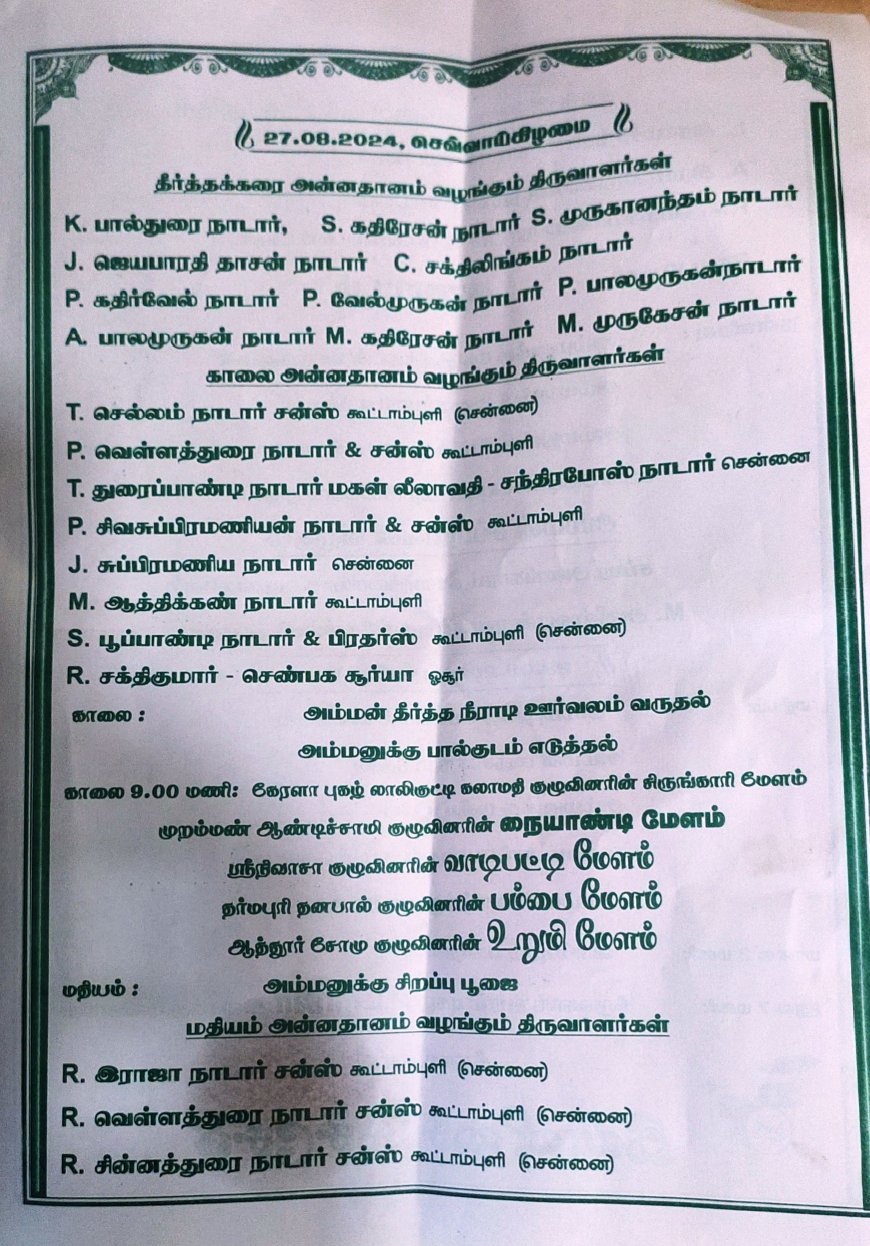 27.08.2024, செவ்வாய்கிழமை
தீர்த்தக்கரை அன்னதானம் வழங்கும் திருவாளர்கள்
K. பால்துரை நாடார், S. கதிரேசன் நாடார் S. முருகானந்தம் நாடார்
J. ஜெயபாரதி தாசன் நாடார் C. சக்திலிங்கம் நாடார்
P. கதிர்வேல் நாடார் P. வேல்முருகன் நாடார் P. பாலமுருகன்நாடார்
A. பாலமுருகன் நாடார் M. கதிரேசன் நாடார் M. முருகேசன் நாடார்
காலை அன்னதானம் வழங்கும் திருவாளர்கள்
T. செல்லம் நாடார் சன்ஸ் கூட்டாம்புளி (சென்னை)
P. வெள்ளத்துரை நாடார் & சன்ஸ் கூட்டாம்புளி
T. துரைப்பாண்டி நாடார் மகள் லீலாவதி - சந்திரபோஸ் நாடார் சென்னை
P. சிவசுப்பிரமணியன் நாடார் & சன்ஸ் கூட்டாம்புளி
J. சுப்பிரமணிய நாடார் சென்னை
M. ஆத்திக்கண் நாடார் கூட்டாம்புளி
S. பூப்பாண்டி நாடார் & பிரதர்ஸ் கூட்டாம்புளி (சென்னை)
R. சக்திகுமார் - செண்பக சூர்யா ஓசூர்
காலை : அம்மன் தீர்த்த நீராடி ஊர்வலம் வருதல்
அம்மனுக்கு பால்குடம் எடுத்தல்
காலை 9.00 மணி: கேரளா புகழ் லாலிகுட்டி கலாமதி குழுவினரின் சிருங்காரி மேளம்
முறம்மண் ஆண்டிச்சாமி குழுவினரின் நையாண்டி மேளம்
ஸ்ரீநிவாசா குழுவினரின் வாடிபட்டி மேளம்
தர்மபுரி தனபால் குழுவினரின் பம்பை மேளம்
ஆத்தூர் சோமு குழுவினரின் உறுமி மேளம்
மதியம் : அம்மனுக்கு சிறப்பு பூஜை
மதியம் அன்னதானம் வழங்கும் திருவாளர்கள்
R. இராஜா நாடார் சன்ஸ் கூட்டாம்புளி (சென்னை)
R. வெள்ளத்துரை நாடார் சன்ஸ் கூட்டாம்புளி (சென்னை)
R. சின்னத்துரை நாடார் சன்ஸ் கூட்டாம்புளி (சென்னை)